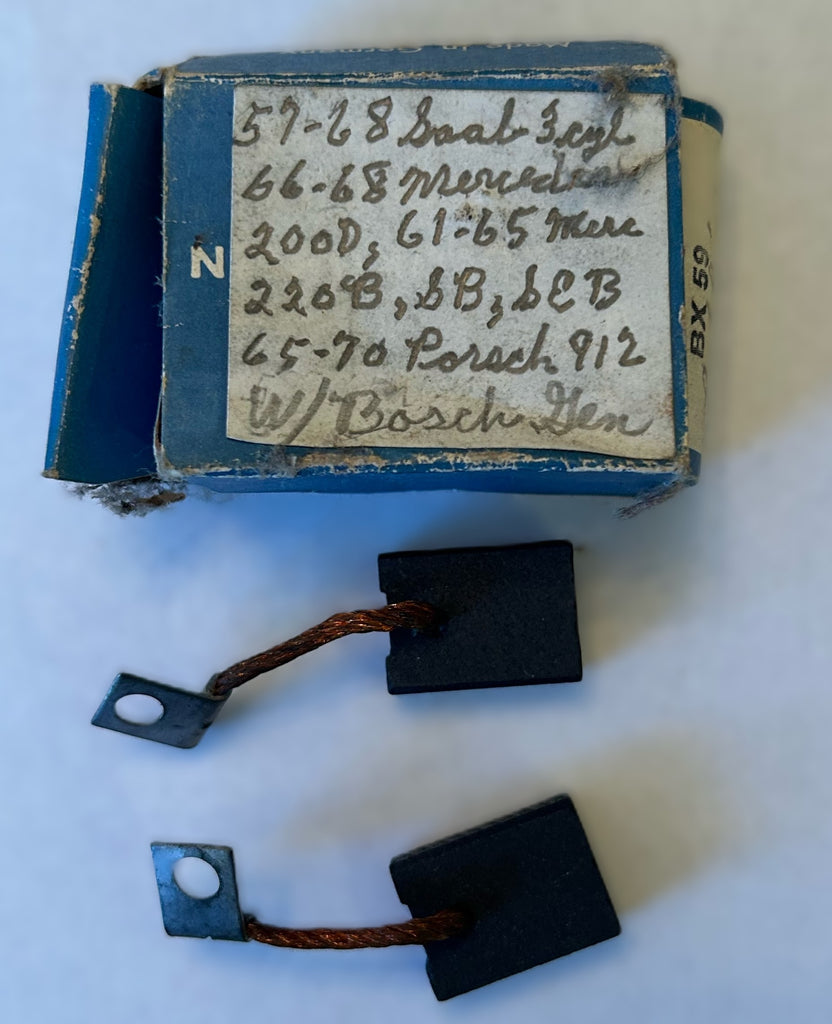 57-68 Saab 3cyl
66-68 Mercedes
200D, 61-65 Merc
220B, SB, SEB
65-70 Porsch 912
W/Bosch Gen
N
BX 59